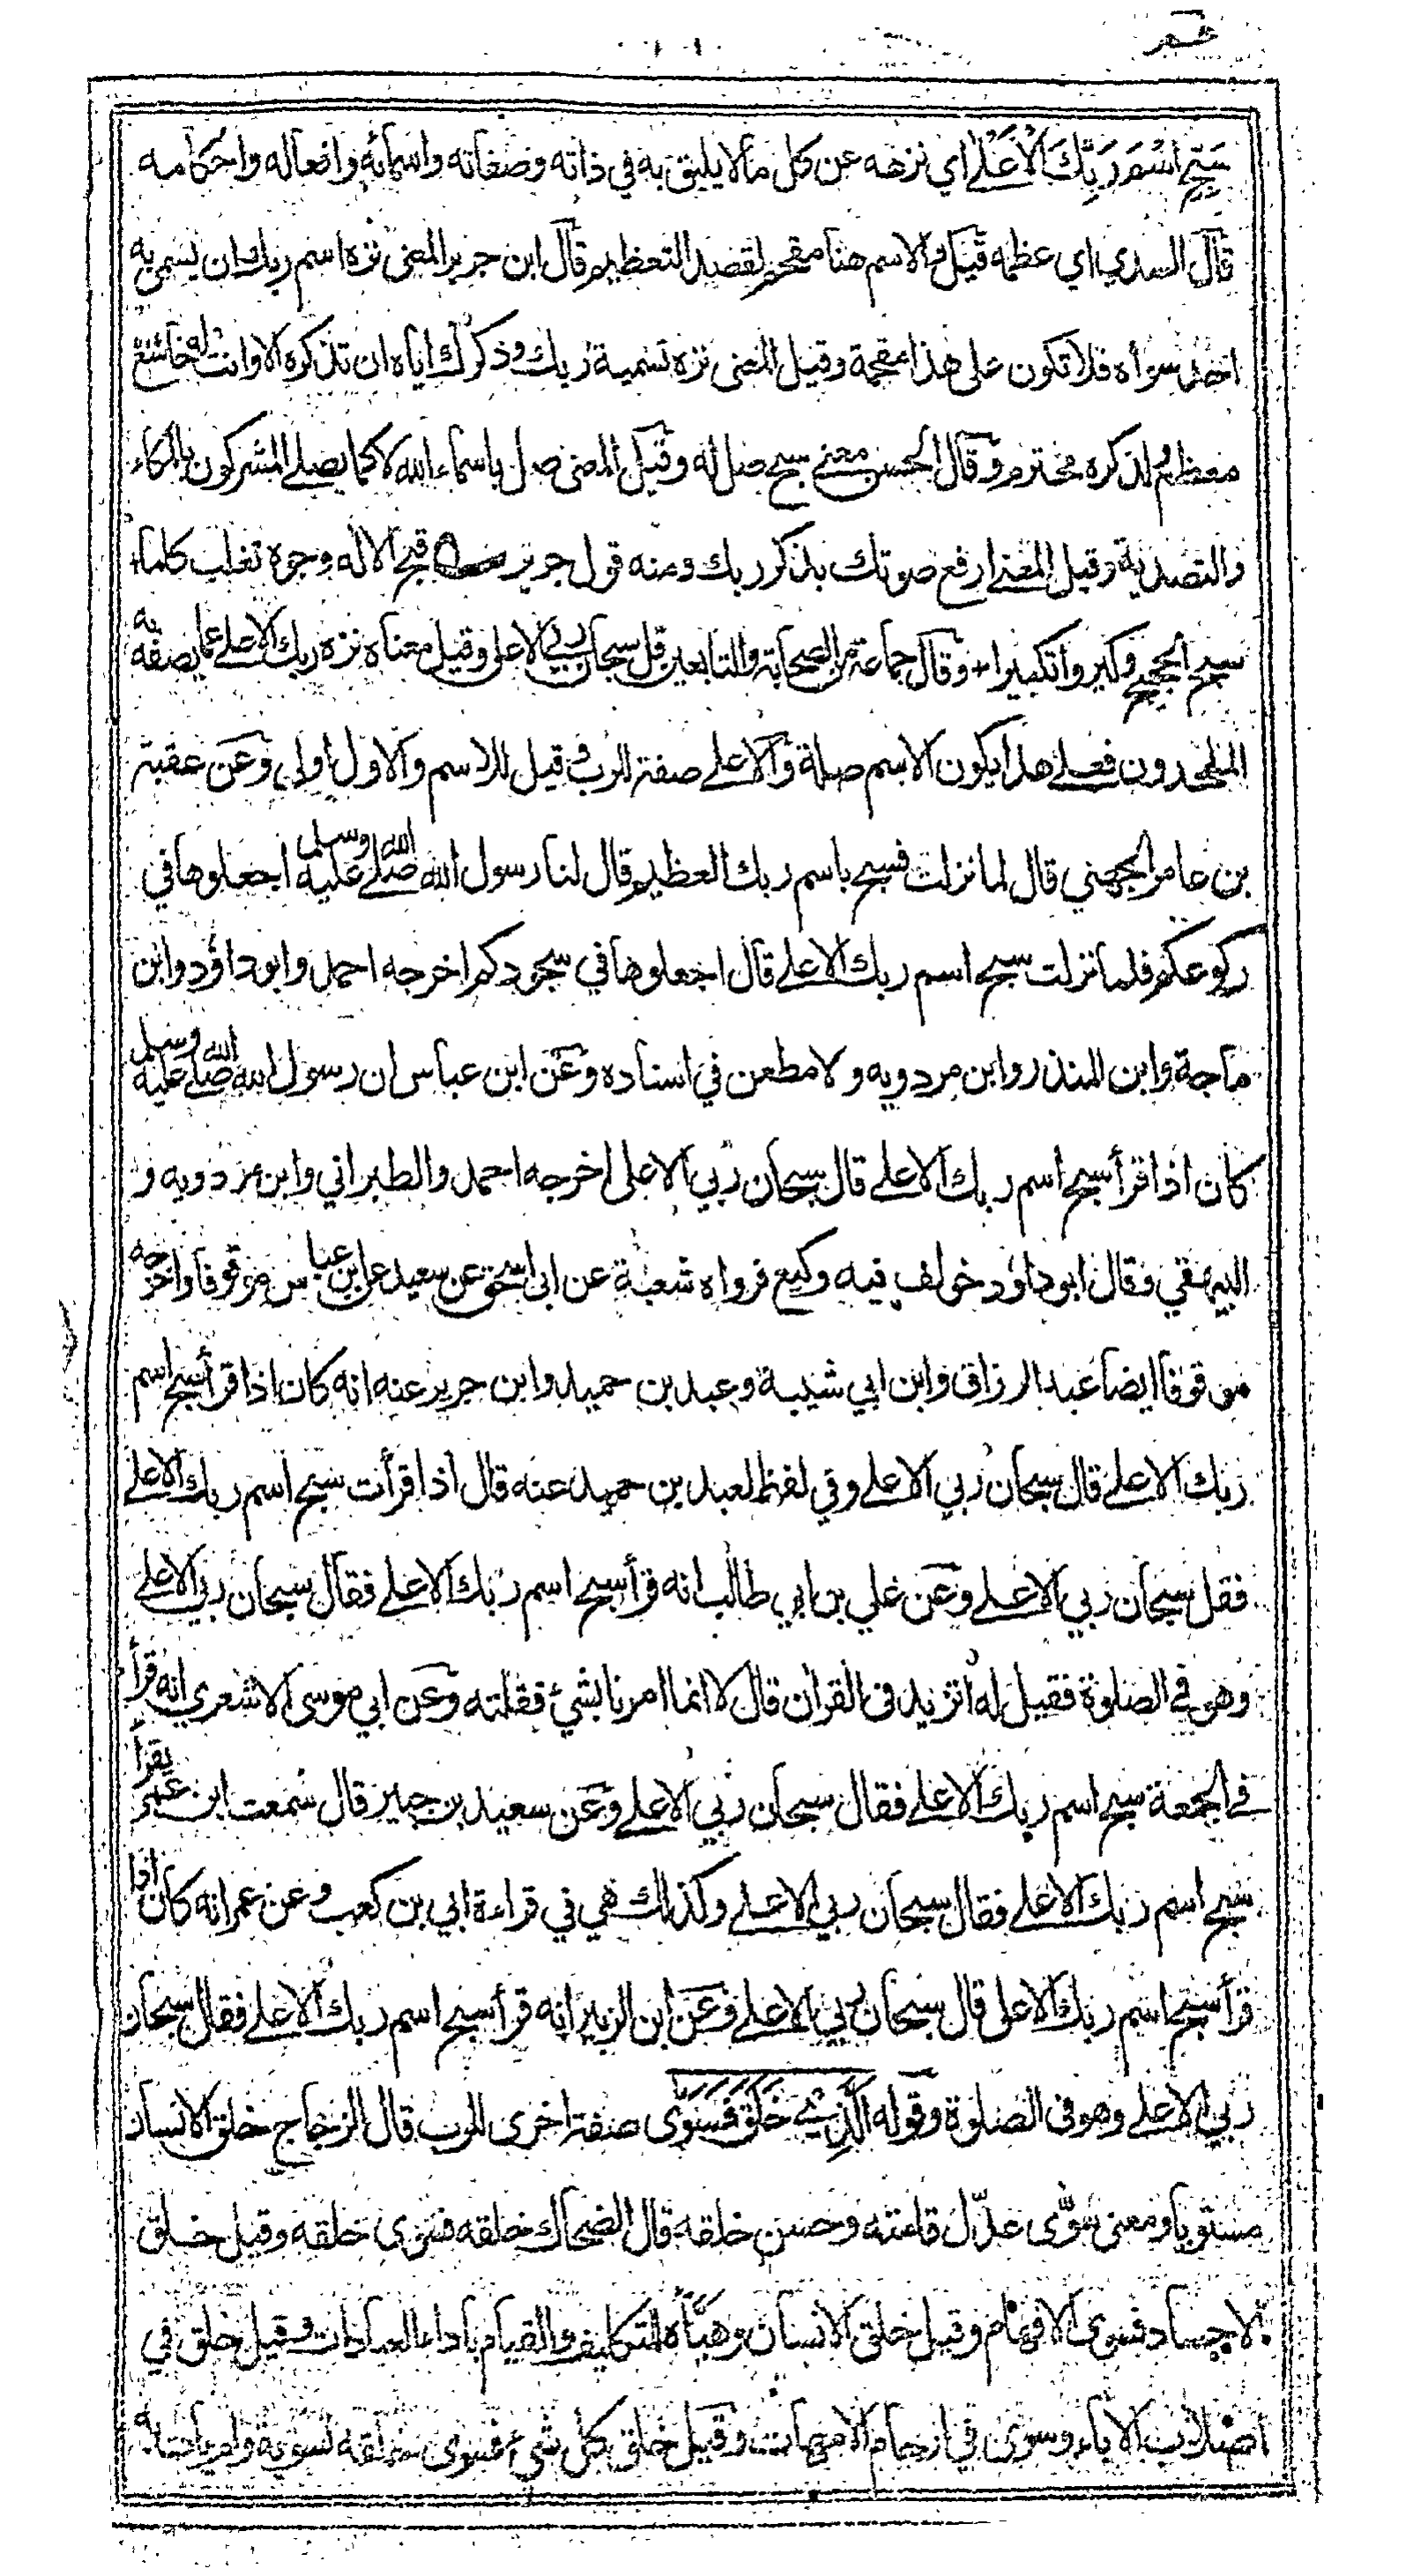 سَبِّحِ اسْمَ رَبِّكَ الْأَعْلَى اي نزهه عن كل ما لا يليق به في ذاته وصفاته واسمائه وافعاله واحكامه
قال السدي اي عظمه قيل والاسم هنا مقحم لقصد التعظيم قال ابن جرير المعنى نزه اسم ربك ان يسمى به
احد سواه فلا تكون على هذا مقحمة وقيل المعنى نزه تسمية ربك وذكرك اياه ان تذكره الا وانت له خاشع
معظم لذكره محترم وقال الحسن معنى سبح صل له وقيل المعنى صل باسماء الله لا كما يصلي المشركون بالمكاء
والتصدية وقيل المعنى ارفع صوتك بذكر ربك ومنه قول جرير قبح الاله وجوه تغلب كلما
سبح الحجيج وكبروا تكبيرا وقال جماعة من الصحابة والتابعين قل سبحان ربي الاعلى وقيل معناه نزه ربك الاعلى عما يصفه به
الملحدون فعلى هذا يكون الاسم صلة والاعلى صفة للرب وقيل للاسم والاول اولى وعن عقبة
بن عامر الجهني قال لما نزلت فسبح باسم ربك العظيم قال لنا رسول الله صلى الله عليه وسلم اجعلوها في
ركوعكم فلما نزلت سبح اسم ربك الاعلى قال اجعلوها في سجودكم اخرجه احمد وابو داؤد وابن
ماجة وابن المنذر وابن مردويه ولا مطعن في اسناده وعن ابن عباس ان رسول الله صلى الله عليه وسلم
كان اذا قرأ سبح اسم ربك الاعلى قال سبحان ربي الاعلى اخرجه احمد والطبراني وابن مردويه و
البيهقي وقال ابو داؤد خولف فيه وكيع فرواه شعبة عن ابي اسحق عن سعيد عن ابن عباس موقوفا واخرجه
موقوفا ايضا عبد الرزاق وابن ابي شيبة وعبد بن حميد وابن جرير عنه انه كان اذا قرأ سبح اسم
ربك الاعلى قال سبحان ربي الاعلى وفي لفظ لعبد بن حميد عنه قال اذا قرأت سبح اسم ربك الاعلى
فقل سبحان ربي الاعلى وعن علي بن ابي طالب انه قرأ سبح اسم ربك الاعلى فقال سبحان ربي الاعلى
وهو في الصلوة فقيل له اتزيد في القران قال لا انما امرنا بشيء فقلته وعن ابي موسى الاشعري انه قرأ
في الجمعة سبح اسم ربك الاعلى فقال سبحان ربي الاعلى وعن سعيد بن جبير قال سمعت ابن عمر يقرأ
سبح اسم ربك الاعلى فقال سبحان ربي الاعلى وكذلك هي في قراءة ابي بن كعب وعن عمر انه كان اذا
قرأ سبح اسم ربك الاعلى قال سبحان ربي الاعلى وعن ابن الزبير انه قرأ سبح اسم ربك الاعلى فقال سبحان
ربي الاعلى وهو في الصلوة وقوله الَّذِي خَلَقَ فَسَوَّى صفة اخرى للرب قال الزجاج خلق الانسان
مستويا ومعنى سوّى عدّل قامته وحسن خلقه قال الضحاك خلقه فسوى خلقه وقيل خلق
الاجساد فسوى الافهام وقيل خلق الانسان وهيأه للتكليف والقيام باداء العبادات وقيل خلق في
اصلاب الاباء وسوى في ارحام الامهات وقيل خلق كل شيء فسوى خلقه تسوية ولم يأت به